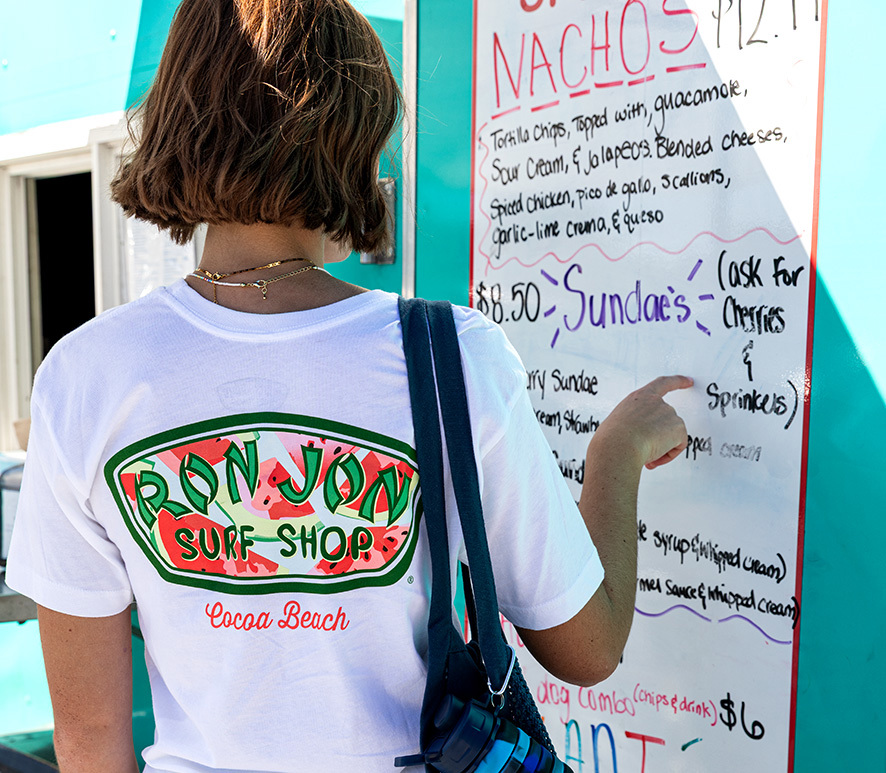 NACHOS
Tortilla chips, Topped with, guacamole,
Sour Cream, & Jalapeos. Blended cheeses,
Spiced chicken, pico de gallo, scallions,
garlic-lime crema, & queso
$8.50 Sundae's (ask For
Cherries
&
Sprinkels)
Sundae
pped cream
syrup & whipped cream)
Sauce & whipped cream)
combo (chips & drink) $6
RON JON
SURF SHOP
®
Cocoa Beach